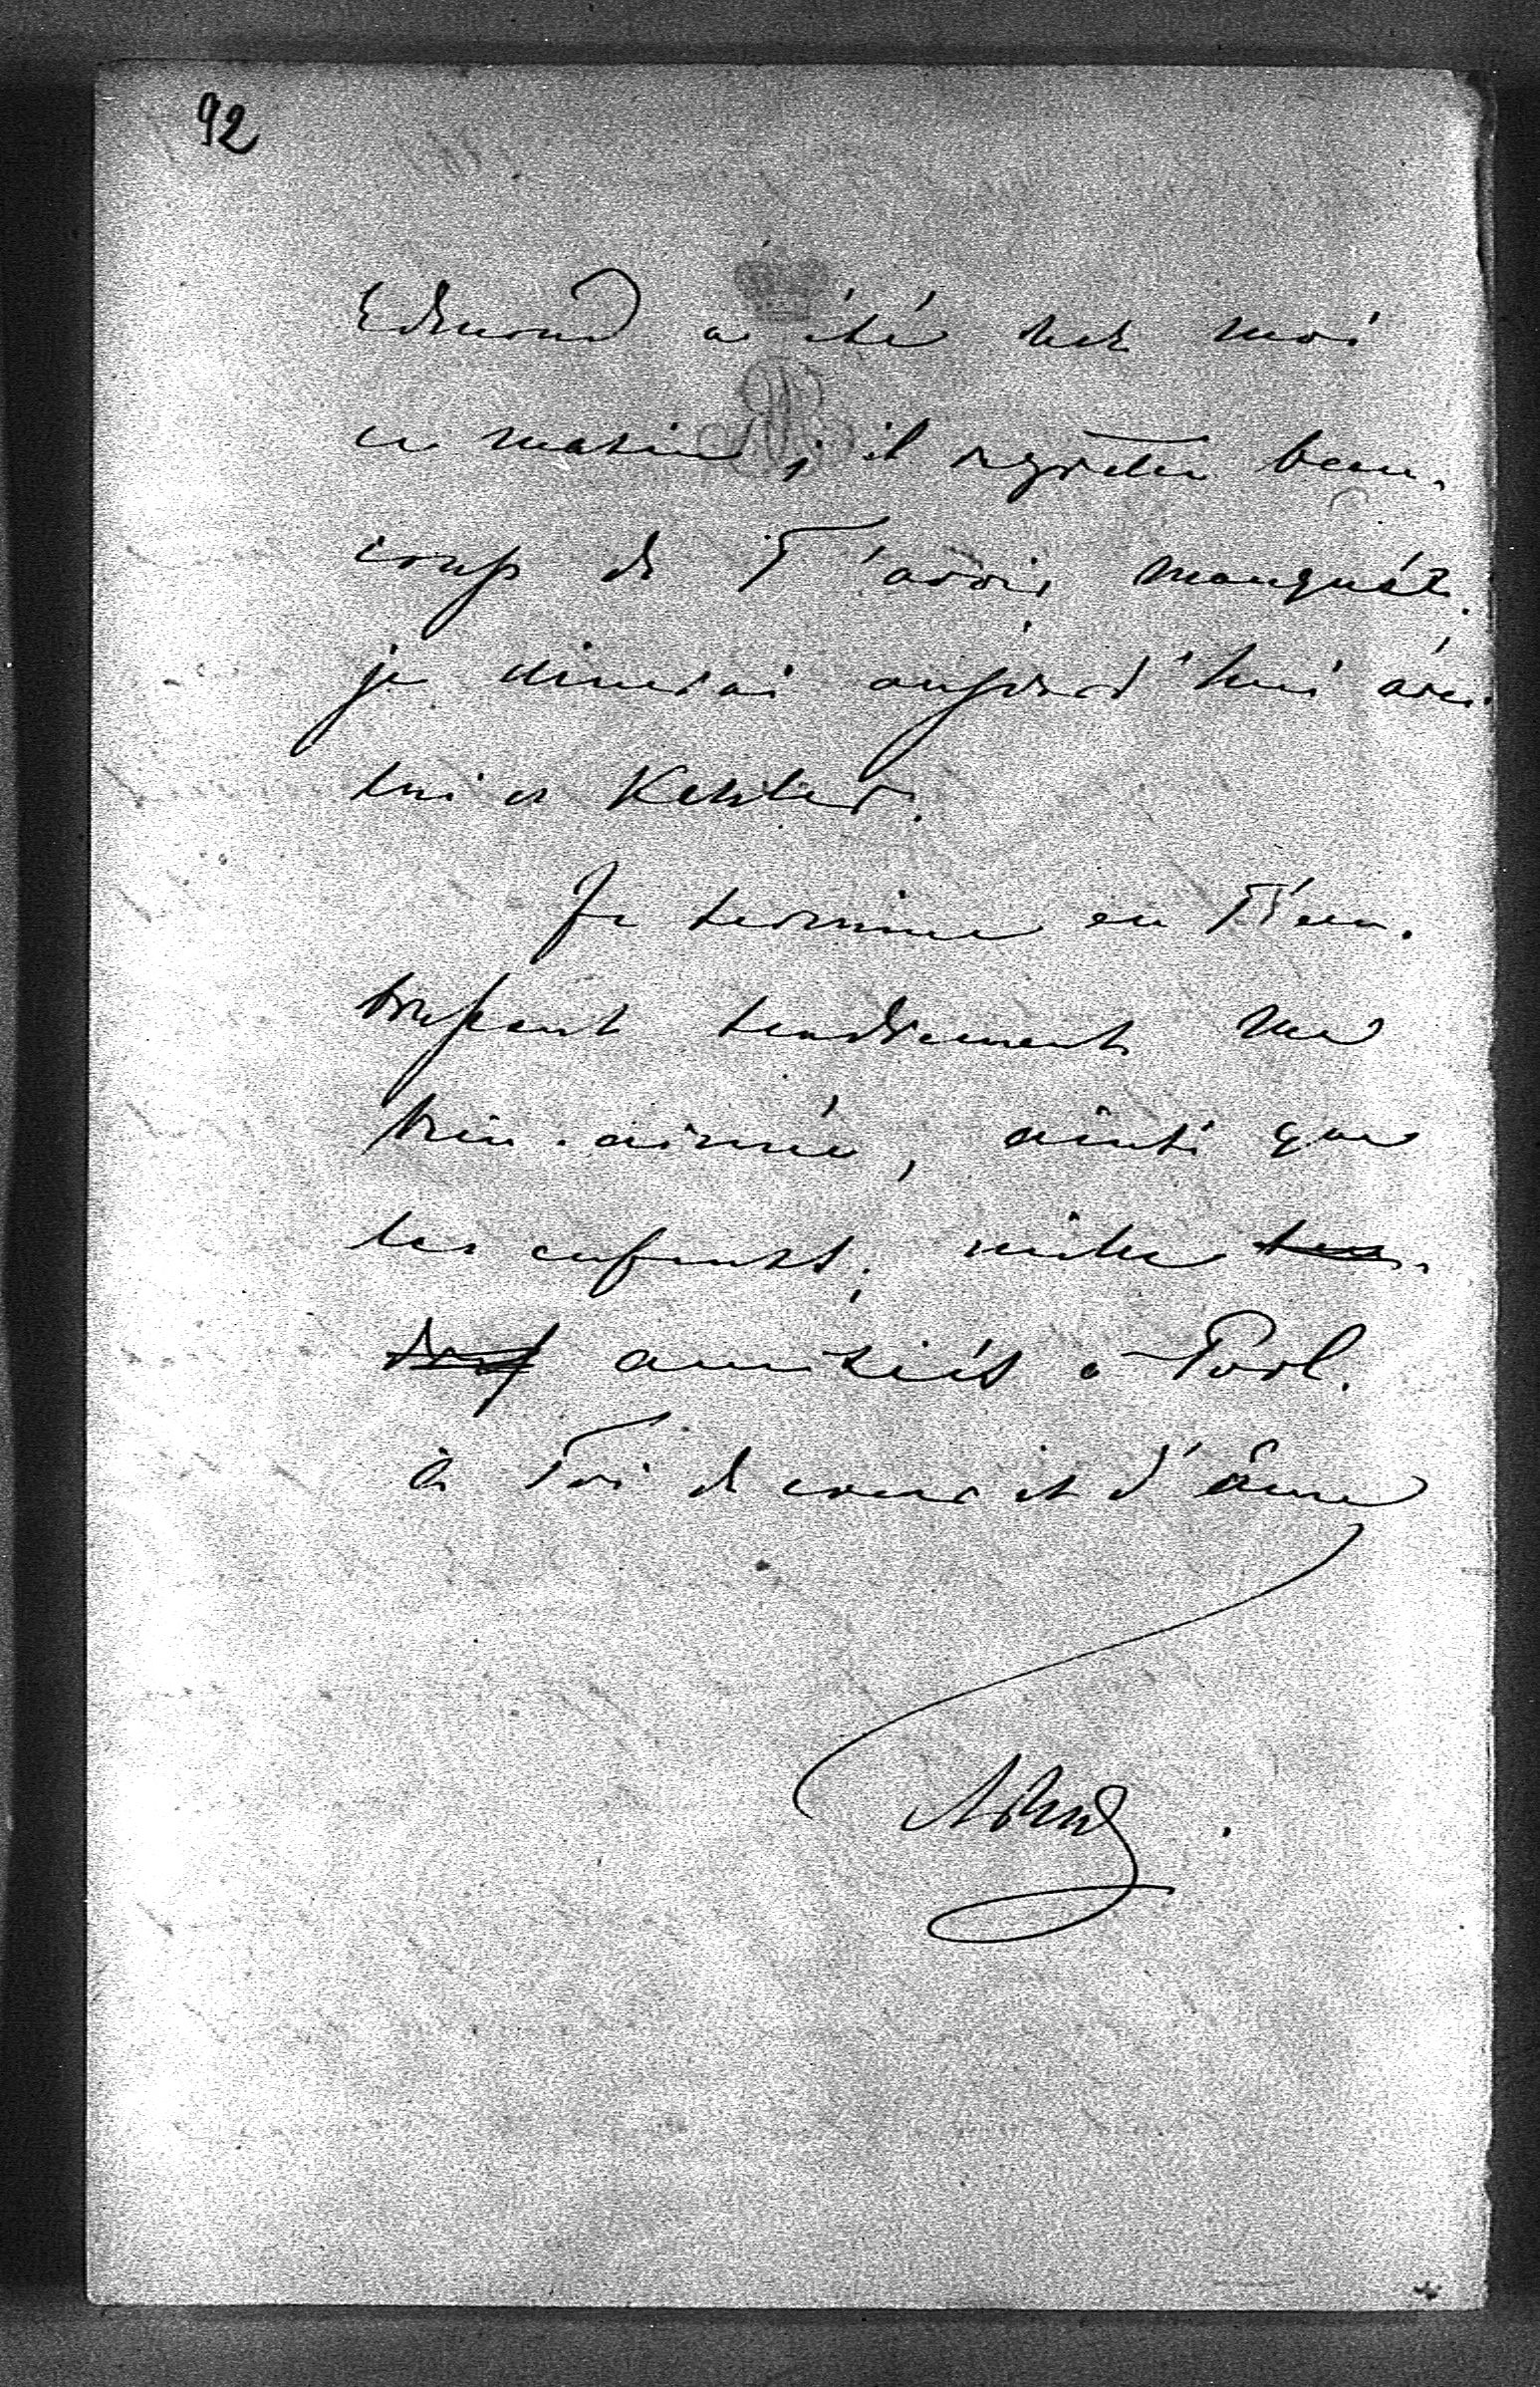 92
Edmond a été chez moi
ce matin, il regrette beau-
coup de T'avoir manquée.
je dinerai aujourd'hui avec
lui et Kessler.
Je termine en T'em-
brassant tendrement ma
bien-aimée, ainsi que
les enfants; mille ten-
dres amitiés à
à Toi de cœur et d'âme